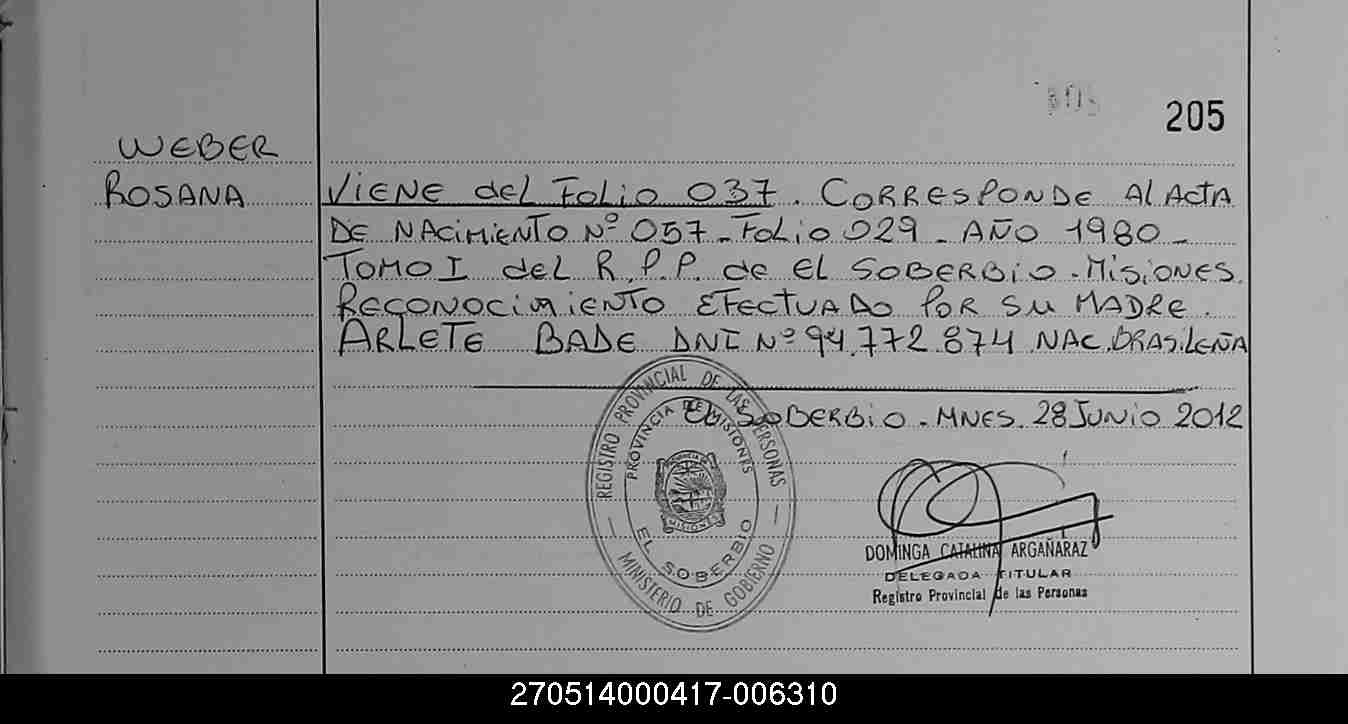 205
WEBER
ROSANA
VIENE del FOLIO 037. CORRESPONDE Al ACTA
DE NACIMIENTO Nº 057-FOLIO 029 - AÑO 1980-
TOMO I del R.P.P. de EL SOBERBIO-MISIONES.
RECONOCIMIENTO EFECTUADO POR SU MADRE.
ARLETE BADE DNI Nº 94.772.874 NAC.BRASILEÑA
EL SOBERBIO - MNES. 28 JUNIO 2012
REGISTRO PROVINCIAL DE LAS PERSONAS
PROVINCIA DE MISIONES
MISIONES
EL SOBERBIO
MINISTERIO DE GOBIERNO
DOMINGA CATALINA ARGAÑARAZ
DELEGADA TITULAR
Registro Provincial de las Personas
270514000417-006310